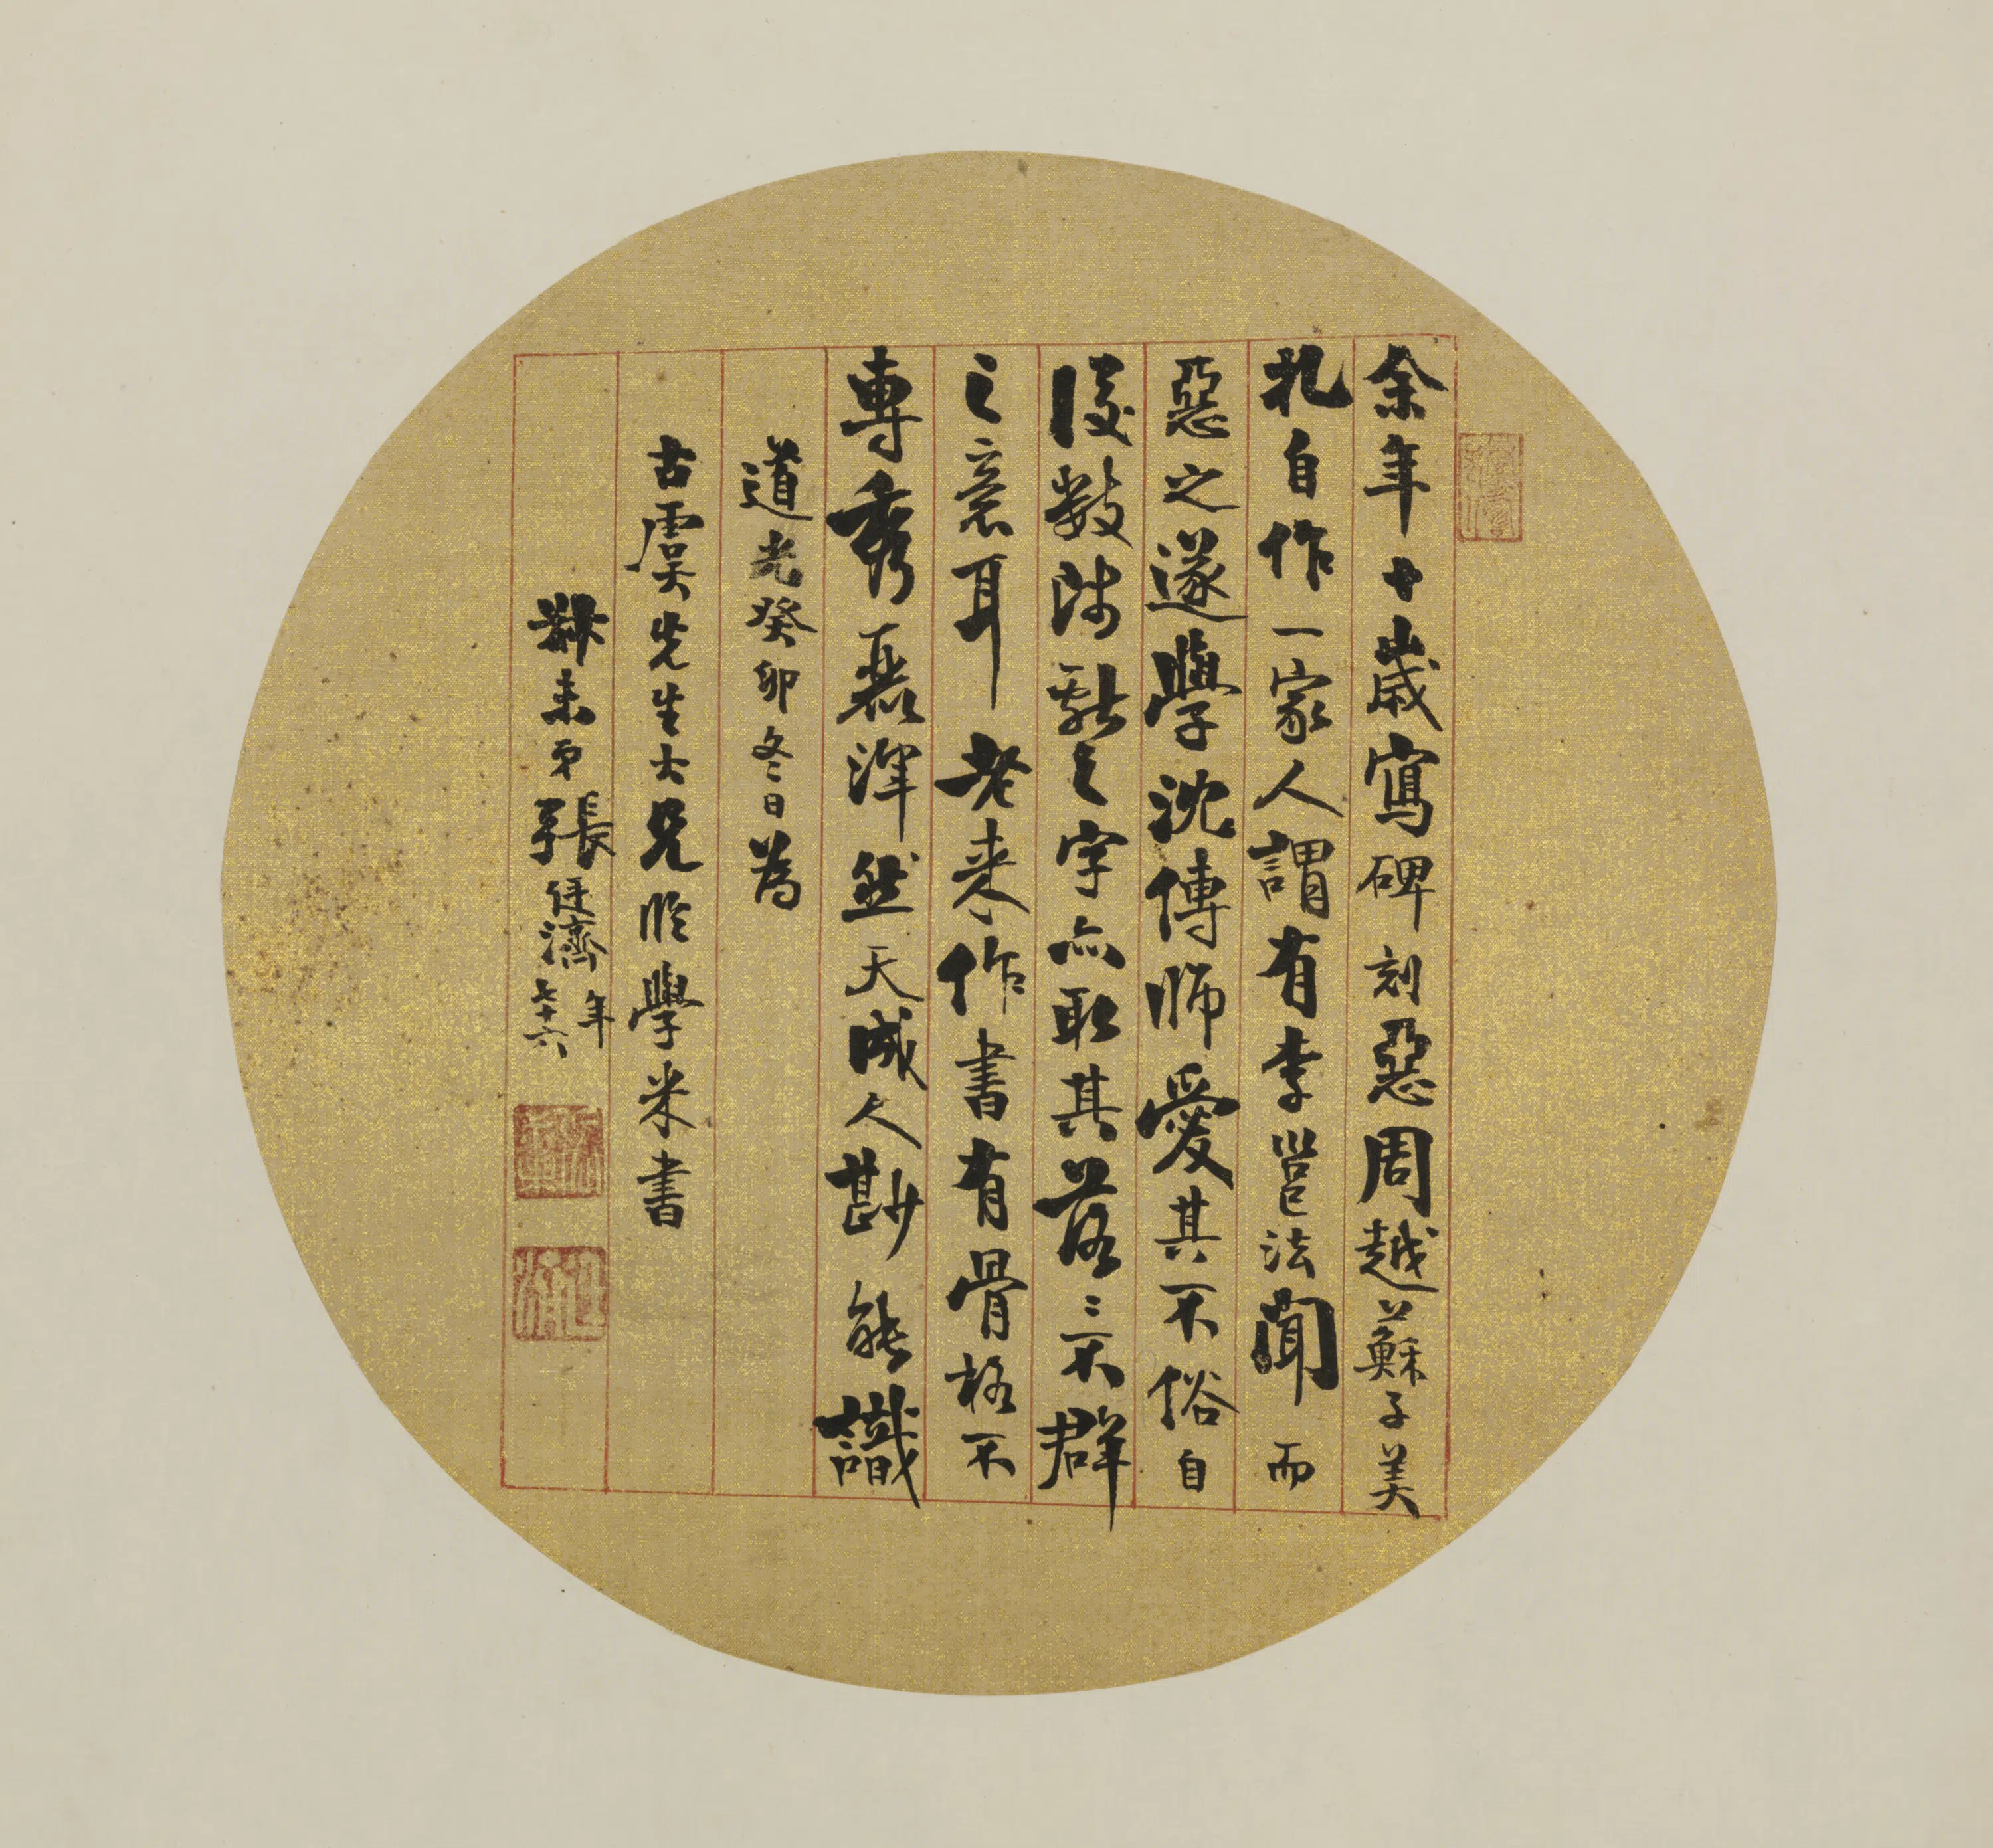 余年十歲寫碑刻惡周越蘇子美
札自作一家人謂有李邕法聞而
惡之遂學沈傳師愛其不俗自
後數改獻之字亦取其落〻不群
之意耳老來作書有骨格不
專秀磊渾然天成人尠能識
道光癸卯冬日為
古虞先生大兄臨學米書
叔未弟張廷濟年
七十六